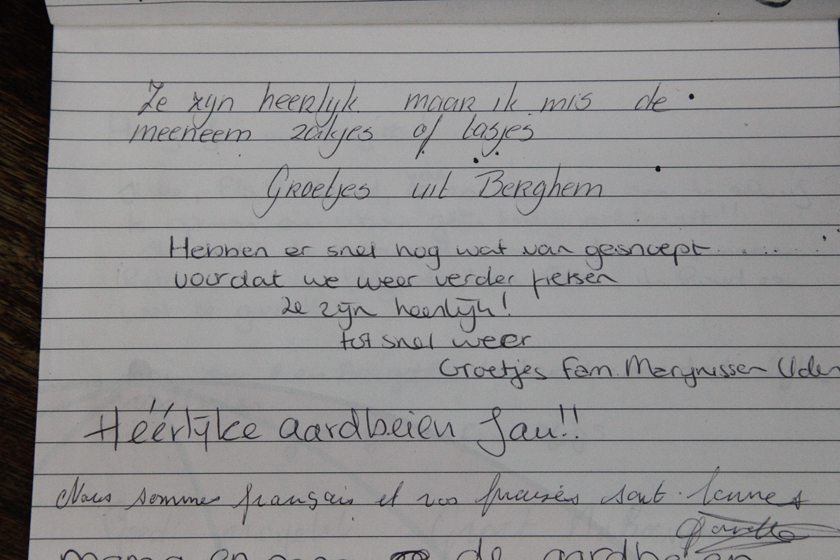 Ze zijn heerlijk maar ik mis de
meeneem zakjes of tasjes
Groetjes uit Berghem
Hebben er snel nog wat van gesnoept ....
voordat we weer verder fietsen
Ze zijn heerlijk!
tot snel weer
Groetjes Fam. Marynissen Uden
Héérlijke aardbeien Jan!!
Nous sommes français et vos fraises sont bonnes
mama en de aardbeien